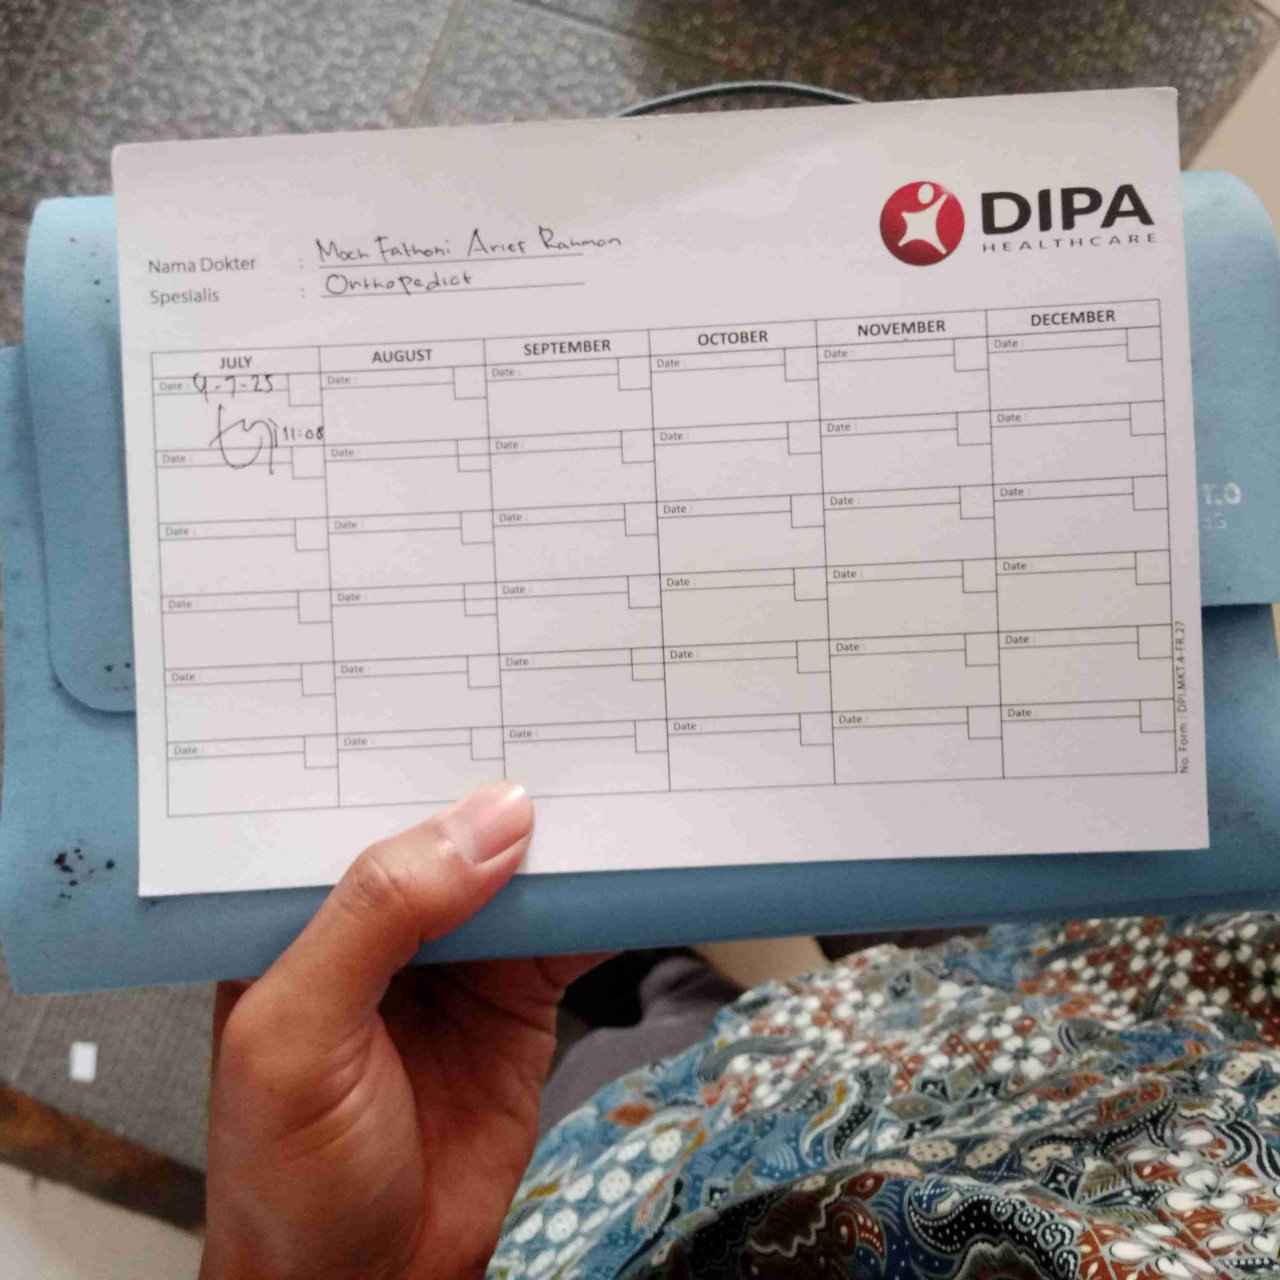 DIPA
HEALTHCARE
Nama Dokter : Moch Fathoni Arief Rahman
Spesialis : Orthopedict
JULY AUGUST SEPTEMBER OCTOBER NOVEMBER DECEMBER
Date : 4-7-25 Date : Date : Date : Date : Date :
11:08
Date : Date : Date : Date : Date : Date :
Date : Date : Date : Date : Date : Date :
Date : Date : Date : Date : Date : Date :
Date : Date : Date : Date : Date : Date :
Date : Date : Date : Date : Date : Date :
No. Form : DPI.MKT.4-FR.27